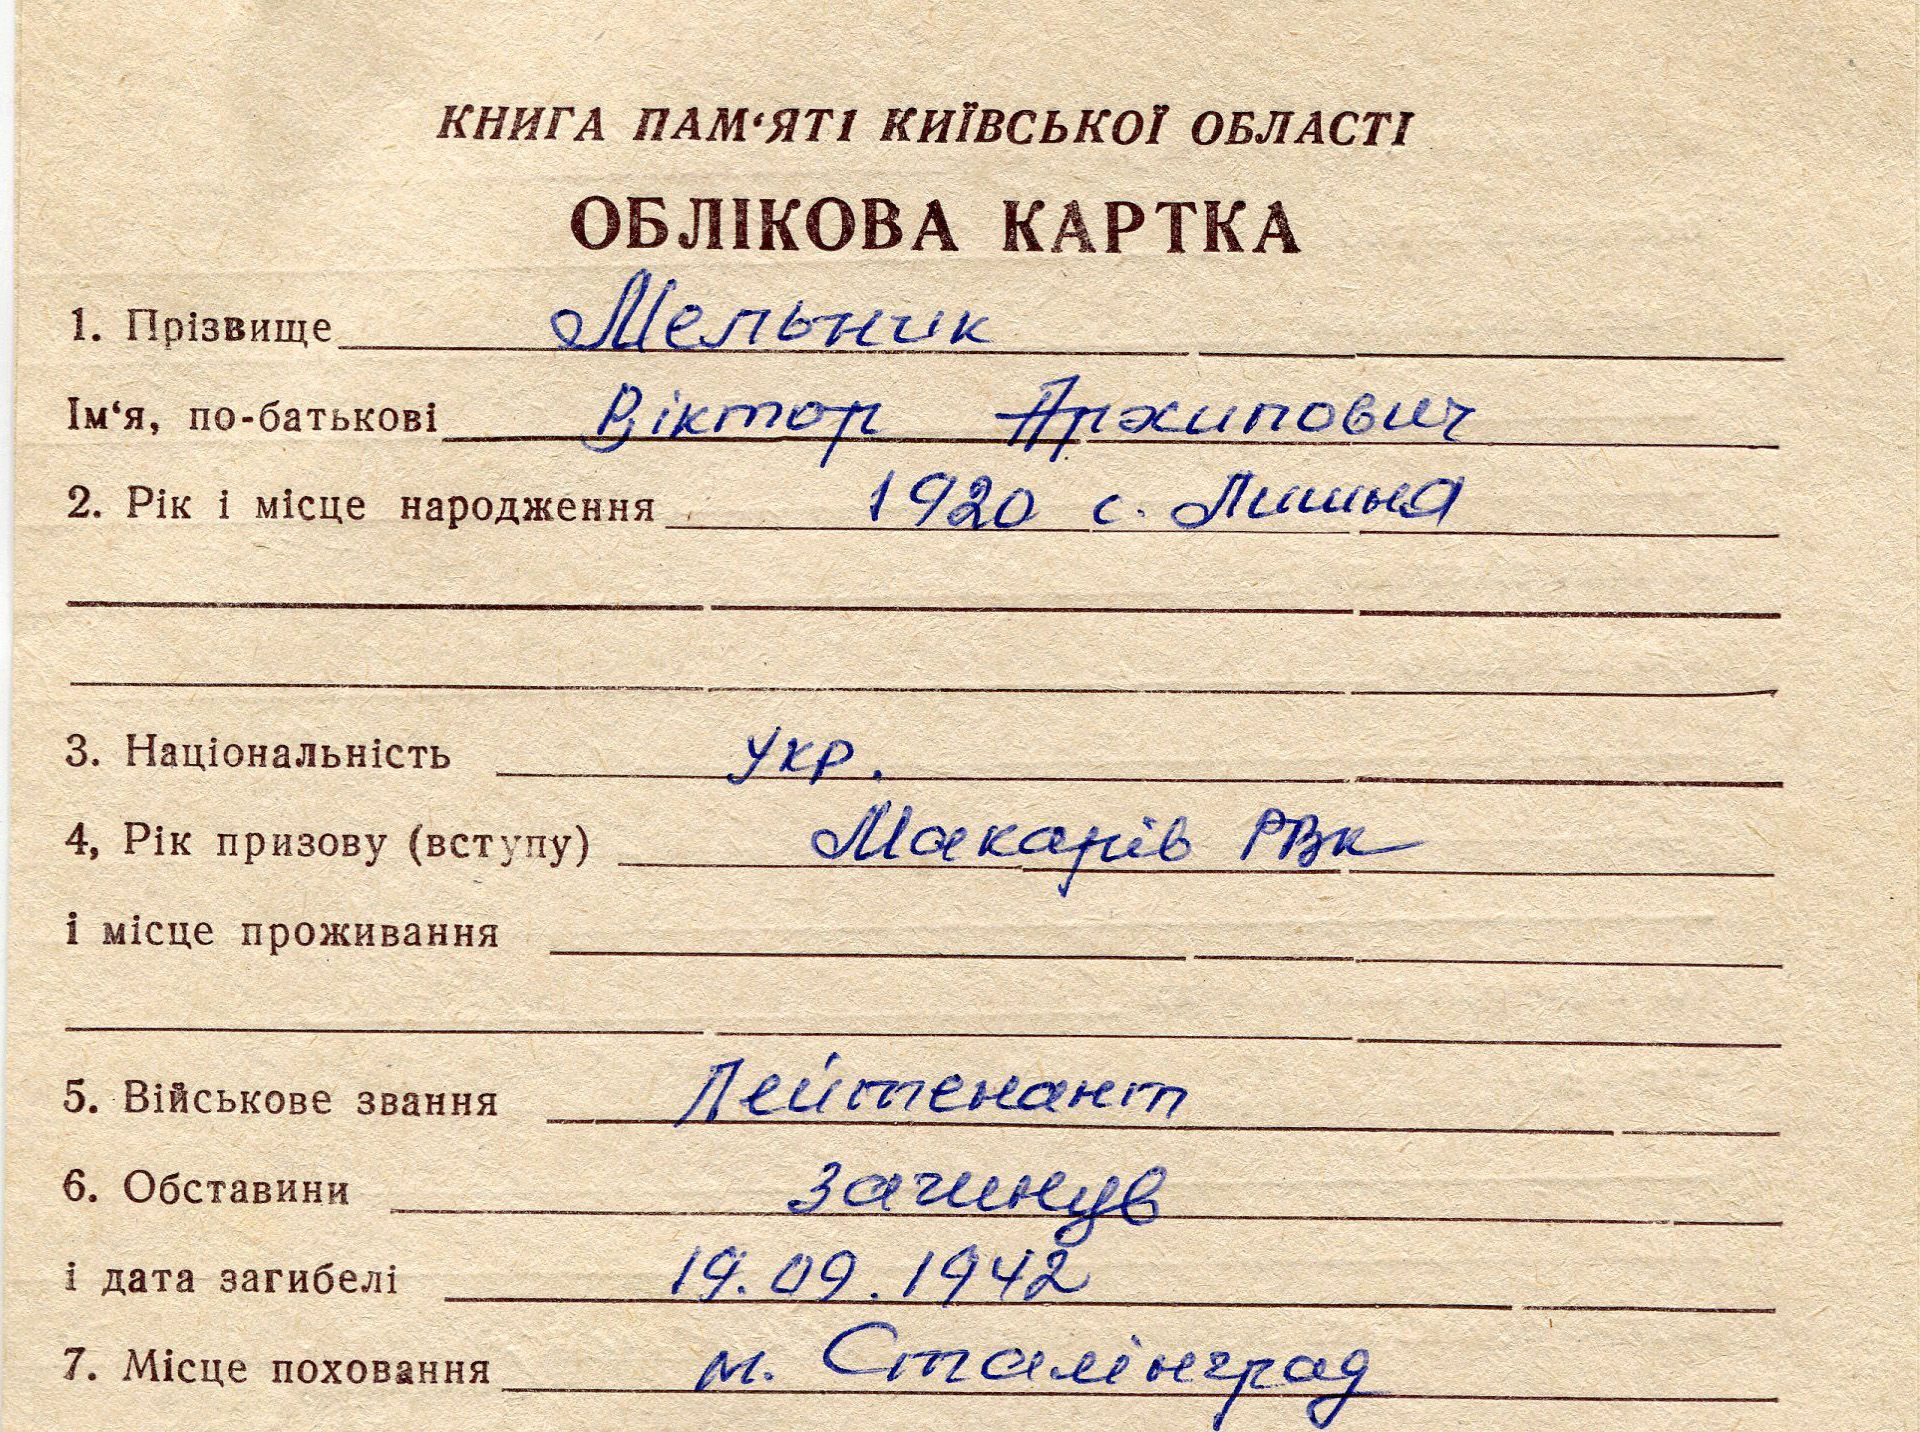 КНИГА ПАМ‘ЯТІ КИЇВСЬКОЇ ОБЛАСТІ
ОБЛІКОВА КАРТКА
1. Прізвище Мельник
Ім‘я, по-батькові Віктор Архипович
2. Рік і місце народження 1920 с. Лишня
3. Національність укр.
4, Рік призову (вступу) Макарів РВК
і місце проживання
5. Військове звання Лейтенант
6. Обставини загинув
і дата загибелі 19.09.1942
7. Місце поховання м. Сталінград